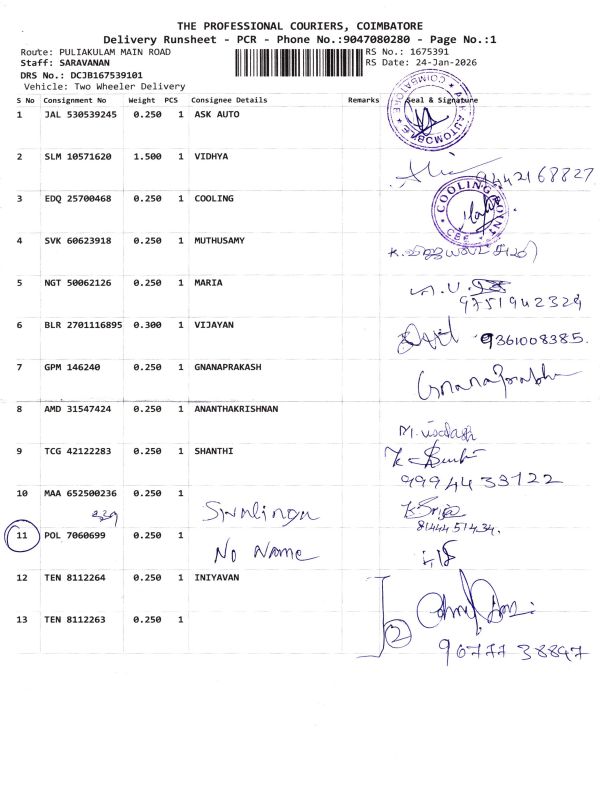 THE PROFESSIONAL COURIERS, COIMBATORE
Delivery Runsheet - PCR - Phone No.:9047080280 - Page No.:1
Route: PULIAKULAM MAIN ROAD RS No.: 1675391
Staff: SARAVANAN RS Date: 24-Jan-2026
DRS No.: DCJB167539101
Vehicle: Two Wheeler Delivery
S No Consignment No Weight PCS Consignee Details Remarks Seal & Signature
1 JAL 530539245 0.250 1 ASK AUTO
2 SLM 10571620 1.500 1 VIDHYA
9442168827
3 EDQ 25700468 0.250 1 COOLING
COOLING POINT CBE
4 SVK 60623918 0.250 1 MUTHUSAMY
5 NGT 50062126 0.250 1 MARIA
9751942329
6 BLR 2701116895 0.300 1 VIJAYAN
9361008385.
7 GPM 146240 0.250 1 GNANAPRAKASH
8 AMD 31547424 0.250 1 ANANTHAKRISHNAN
9 TCG 42122283 0.250 1 SHANTHI
9994433122
10 MAA 652500236 0.250 1
329 Sivalinga
8144451434.
11 POL 7060699 0.250 1 No Name
12 TEN 8112264 0.250 1 INIYAVAN
13 TEN 8112263 0.250 1
2
9677738897